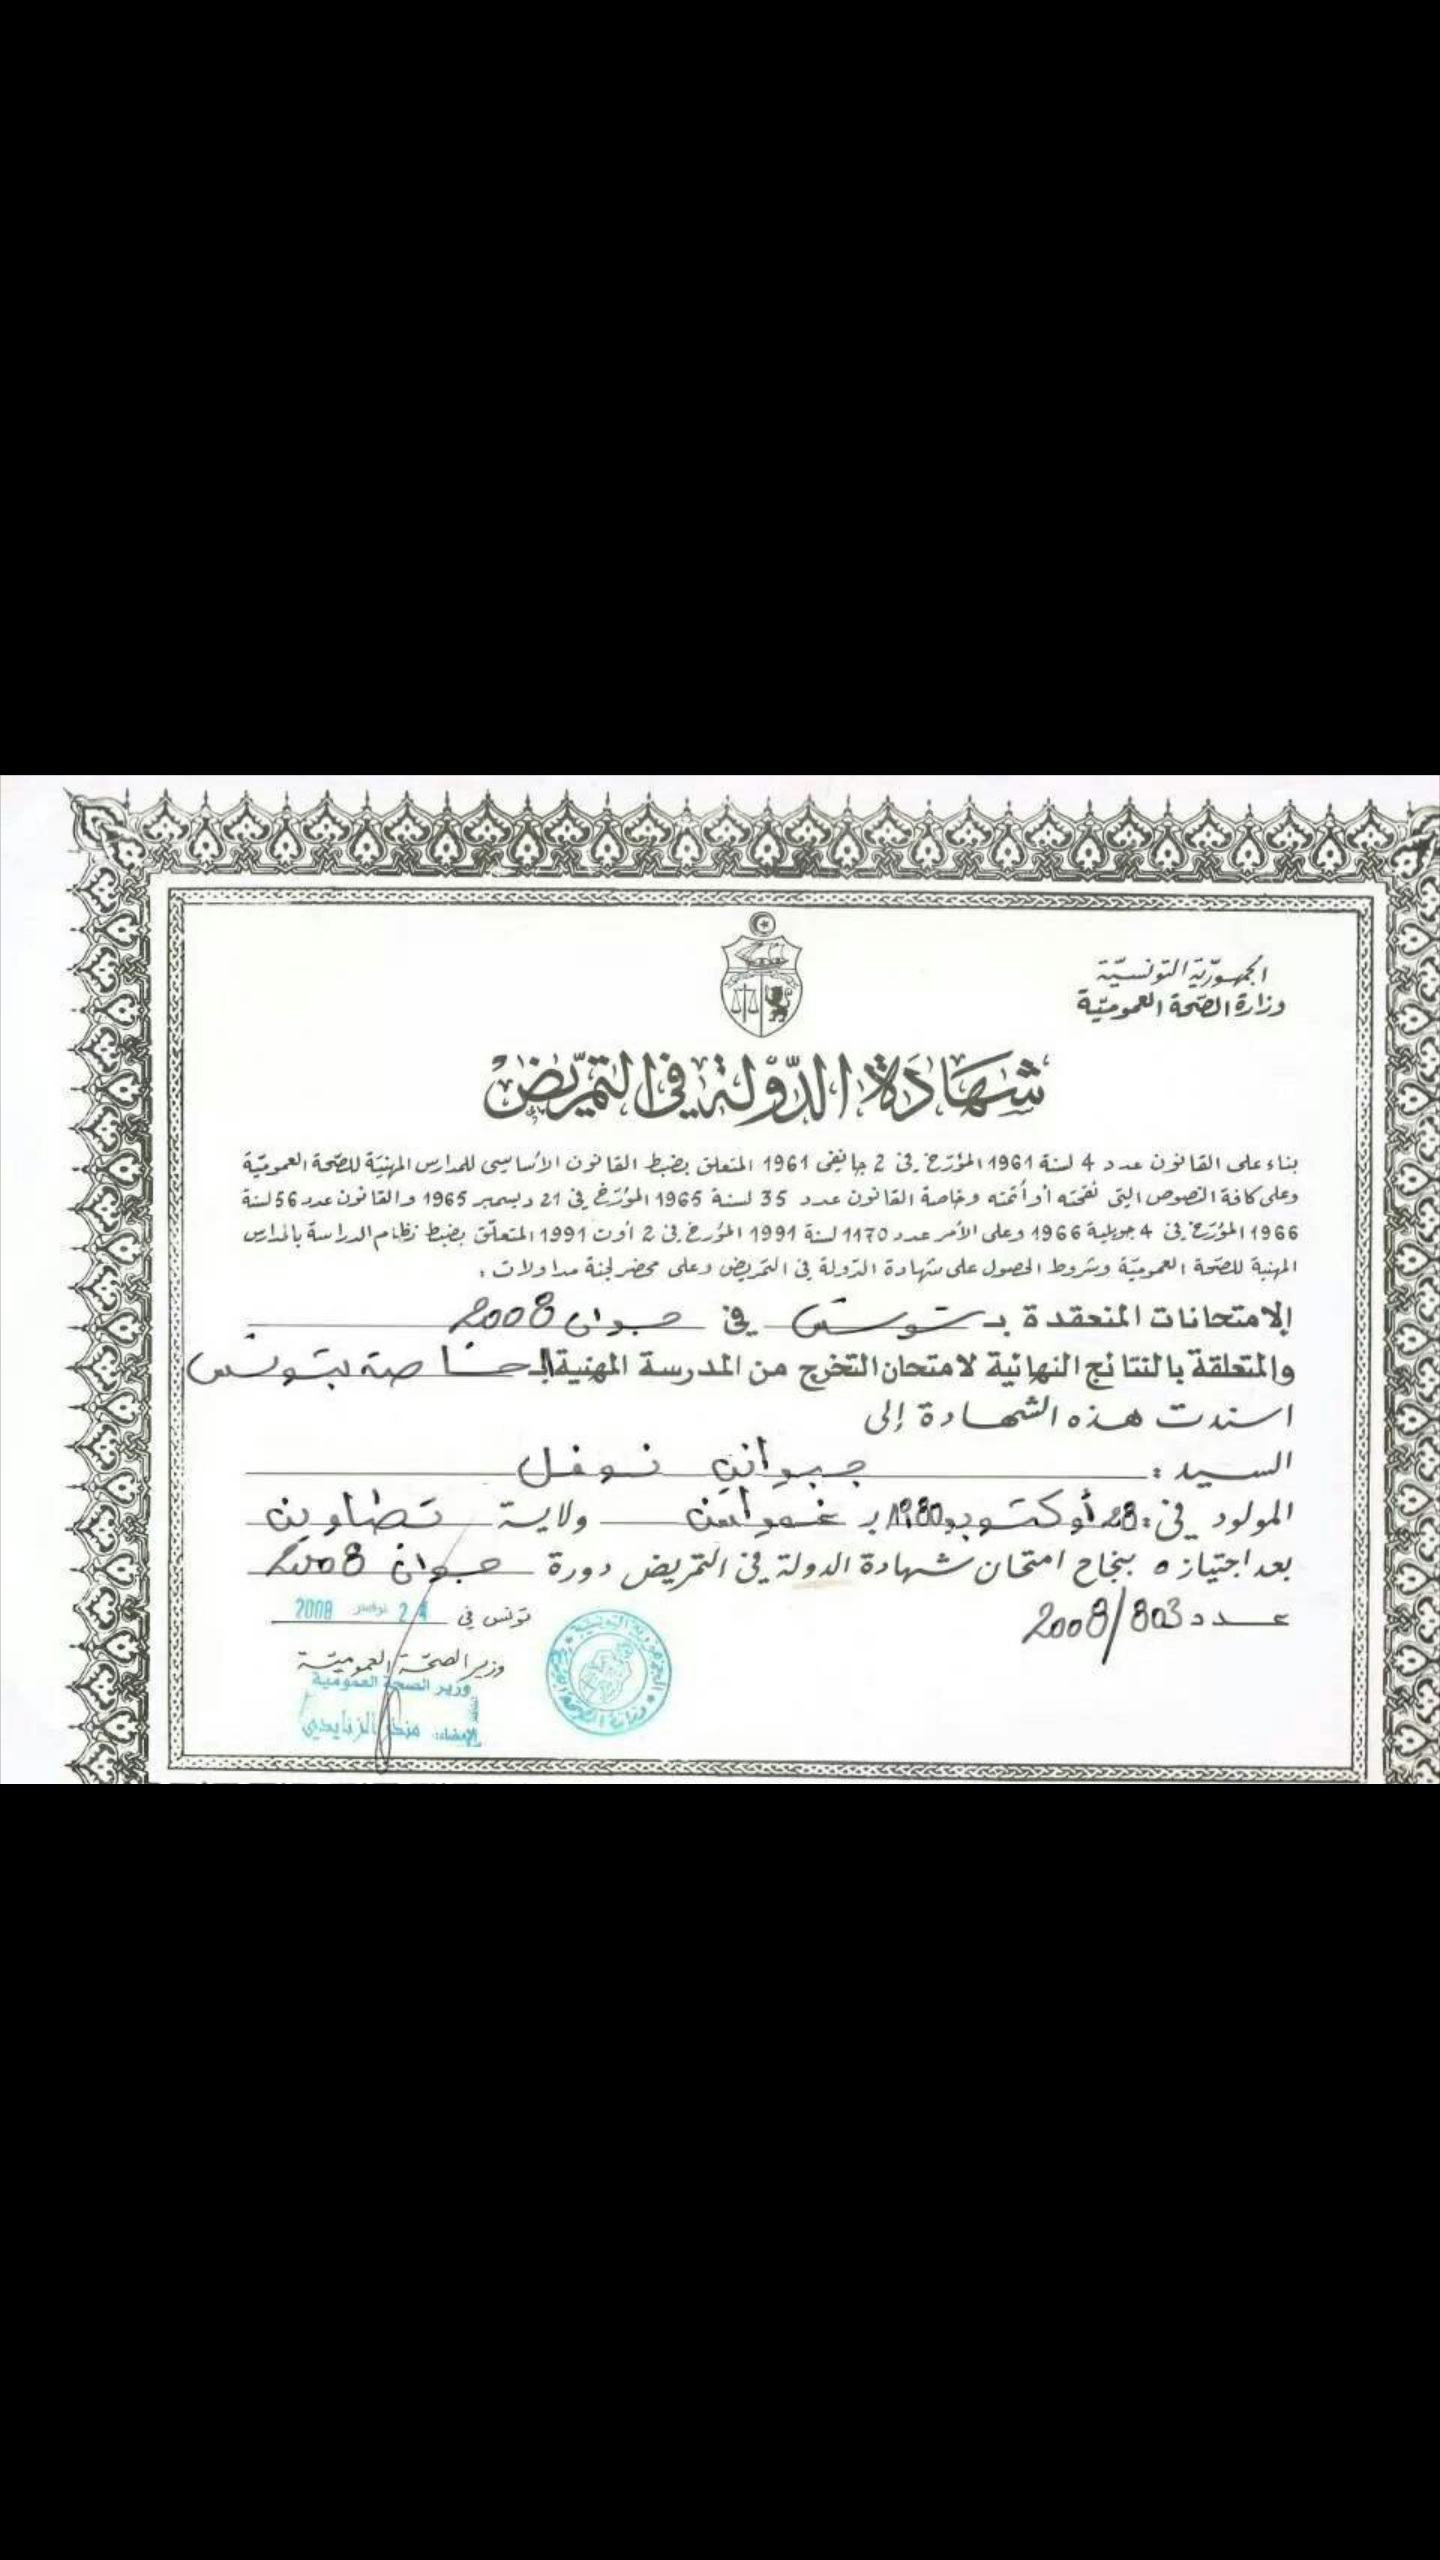 الجمهوريّة التونسيّة
وزارة الصّحة العموميّة
شهادة الدّولة في التمريض
بناء على القانون عدد 4 لسنة 1961 المؤرّخ في 2 جانفي 1961 المتعلق بضبط القانون الأساسي للمدارس المهنيّة للصّحة العموميّة
وعلى كافة النصوص التي نقحته أو أتمته وخاصة القانون عدد 35 لسنة 1965 المؤرّخ في 21 ديسمبر 1965 والقانون عدد 56 لسنة
1966 المؤرّخ في 4 جويلية 1966 وعلى الأمر عدد 1170 لسنة 1991 المؤرخ في 2 أوت 1991 المتعلّق بضبط نظام الدراسة بالمدارس
المهنية للصّحة العموميّة وشروط الحصول على شهادة الدّولة في التمريض وعلى محضر لجنة مداولات :
الامتحانات المنعقدة بـ تونس في جوان 2008
والمتعلقة بالنتائج النهائية لامتحان التخرج من المدرسة المهنية الخاصة بتونس
اسندت هذه الشهادة إلى
السيد : نوفل
المولود في : 28 أكتوبر 1980 بـ غمراسن ولاية تطاوين
بعد اجتيازه بنجاح امتحان شهادة الدولة في التمريض دورة جوان 2008
عدد 2008/803
تونس في 2 نوفمبر 2008
وزير الصحّة العموميّة
وزير الصحة العمومية
الإمضاء: منذر الزنايدي